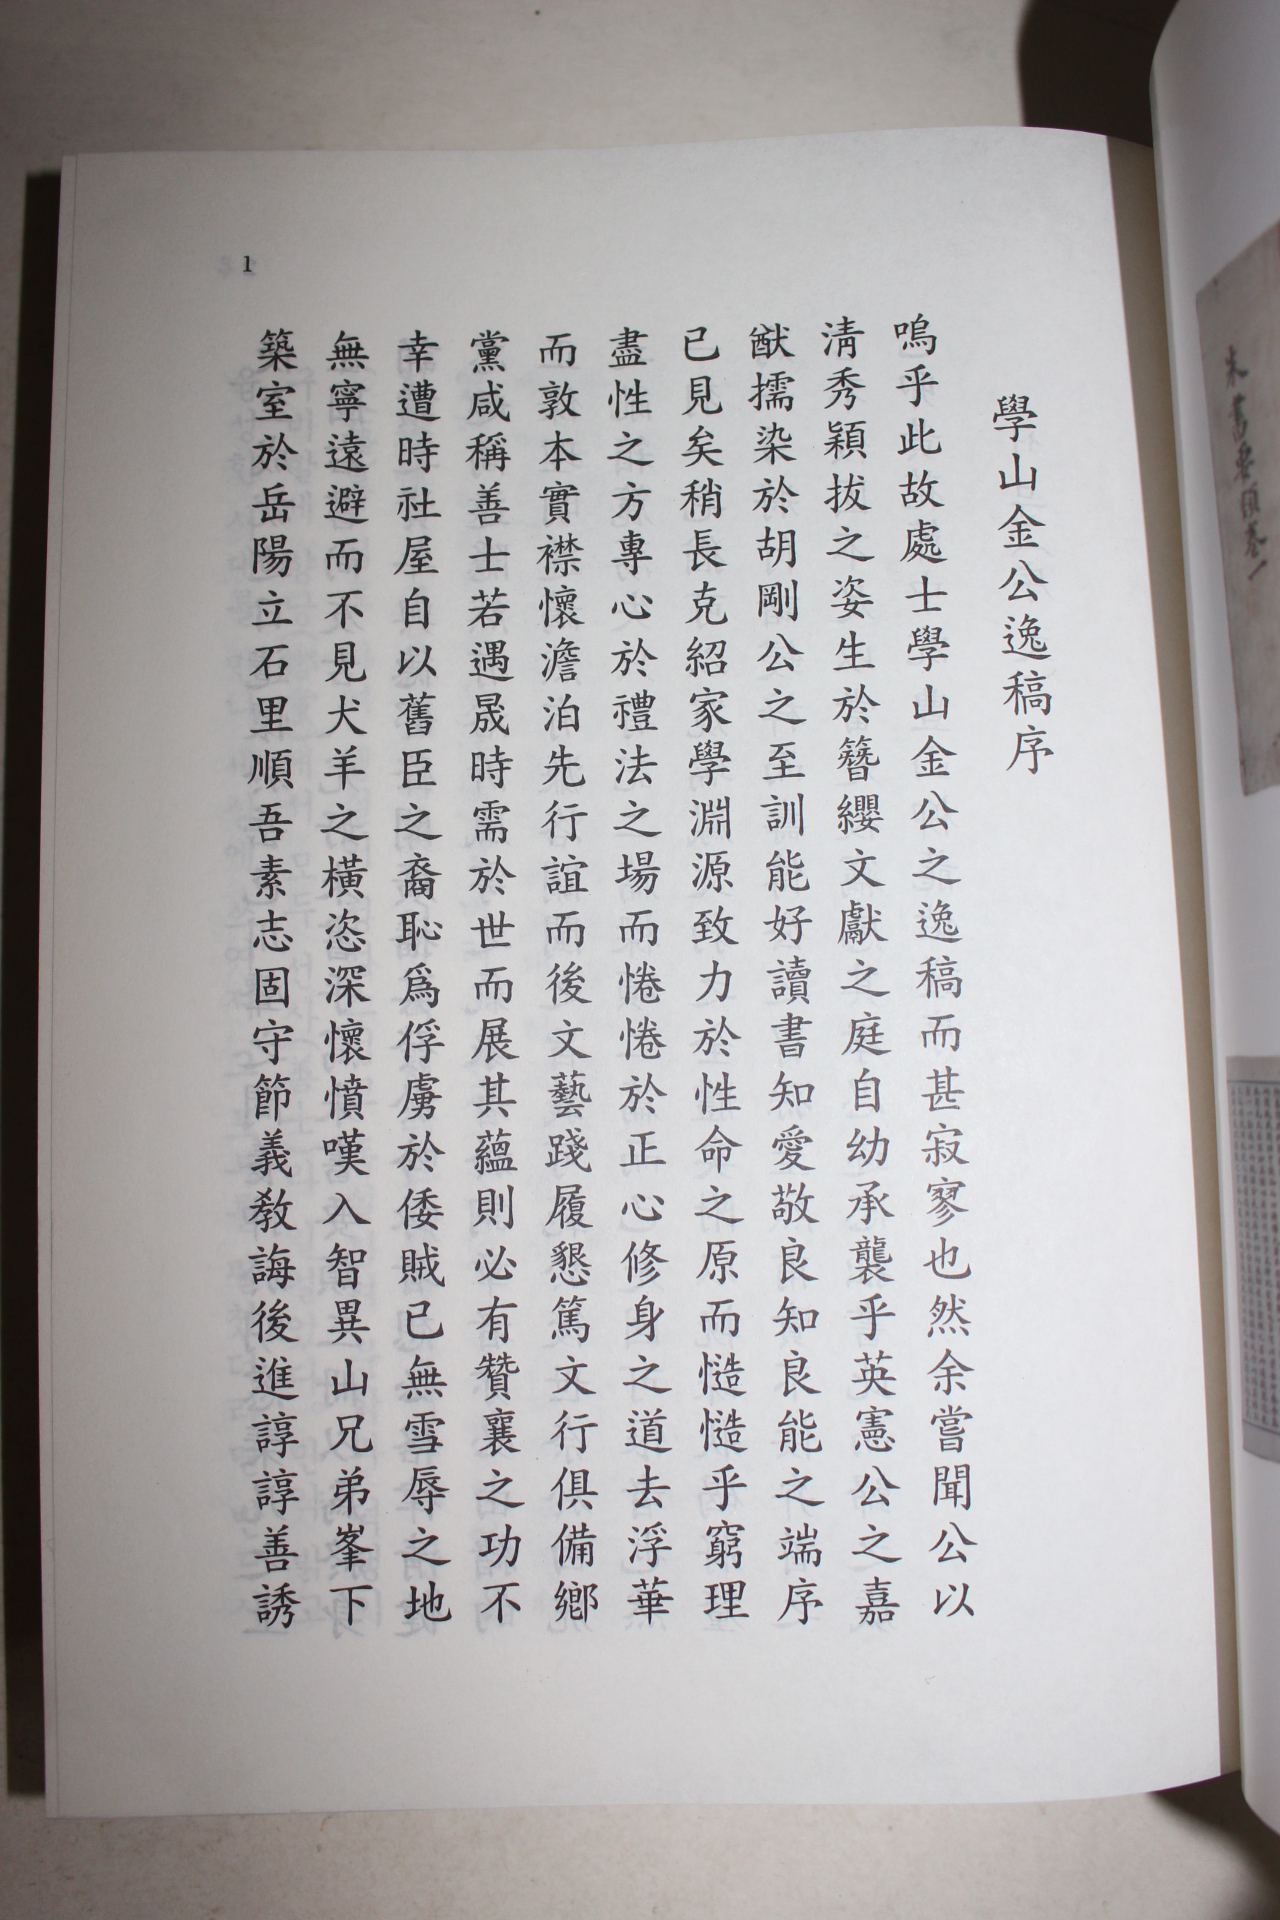 學山金公逸稿序
嗚乎此故處士學山金公之逸稿而甚寂寥也然余嘗聞公以
淸秀穎拔之姿生於簪纓文獻之庭自幼承襲乎英憲公之嘉
猷擩染於胡剛公之至訓能好讀書知愛敬良知良能之端序
已見矣稍長克紹家學淵源致力於性命之原而慥慥乎窮理
盡性之方專心於禮法之場而惓惓於正心修身之道去浮華
而敦本實襟懷澹泊先行誼而後文藝踐履懇篤文行俱備鄉
黨咸稱善士若遇晟時需於世而展其蘊則必有贊襄之功不
幸遭時社屋自以舊臣之裔恥爲俘虜於倭賊已無雪辱之地
無寧遠避而不見犬羊之橫恣深懷憤嘆入智異山兄弟峯下
築室於岳陽立石里順吾素志固守節義敎誨後進諄諄善誘
1
朱書要領卷一